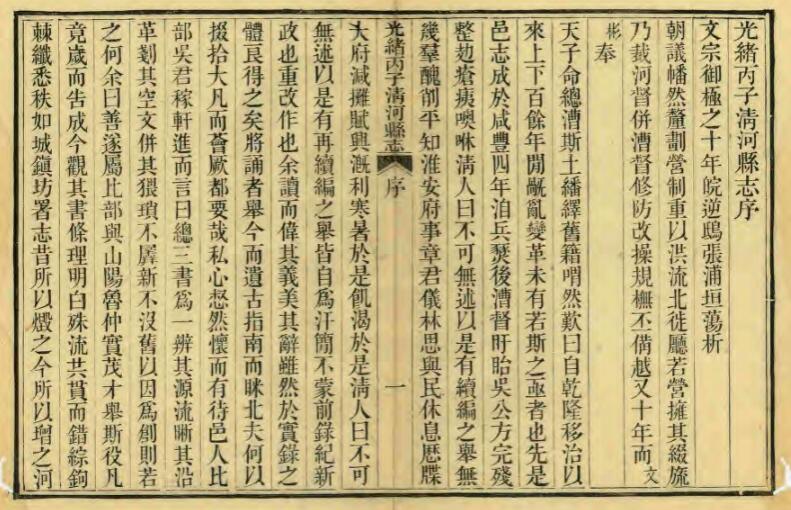 光緒丙子清河縣志序
文宗御極之十年皖逆鴟張浦垣蕩析
朝議幡然釐劃營制重以洪流北徙廳若營擁其綴旒
乃裁河督併漕督修防改操規橅丕備越又十年而文
彬奉
天子命總漕斯土繙繹舊籍喟然歎曰自乾隆移治以
來上下百餘年閒亂變革未有若斯之亟者也先是
邑志成於咸豐四年洎兵燹後漕督盱眙吳公方完殘
整刱瘡痍噢咻清人曰不可無述以是有續編之舉無
幾羣醜削平知淮安府事章君儀林思與民休息歷牒
光緒丙子清河縣志 序 一
大府減攤賦興溉利寒暑於是飢渴於是清人曰不可
無述以是有再續編之舉皆自為汗簡不蒙前錄紀新
政也重改作也余讀而偉其義美其辭雖然於實錄之
體良得之矣將誦者舉今而遺古指南而眯北夫何以
掇拾大凡而薈厥都要哉私心惄然懷而有待邑人比
部吳君稼軒進而言曰總三書為一辨其源流晰其沿
革剗其空文併其猥瑣不羼新不沒舊以因為創則若
之何余曰善遂屬比部與山陽魯仲實茂才舉斯役凡
竟歲而告成今觀其書條理明白殊流共貫而錯綜鉤
棘纖悉秩如城鎮坊署志昔所以燬之今所以增之河